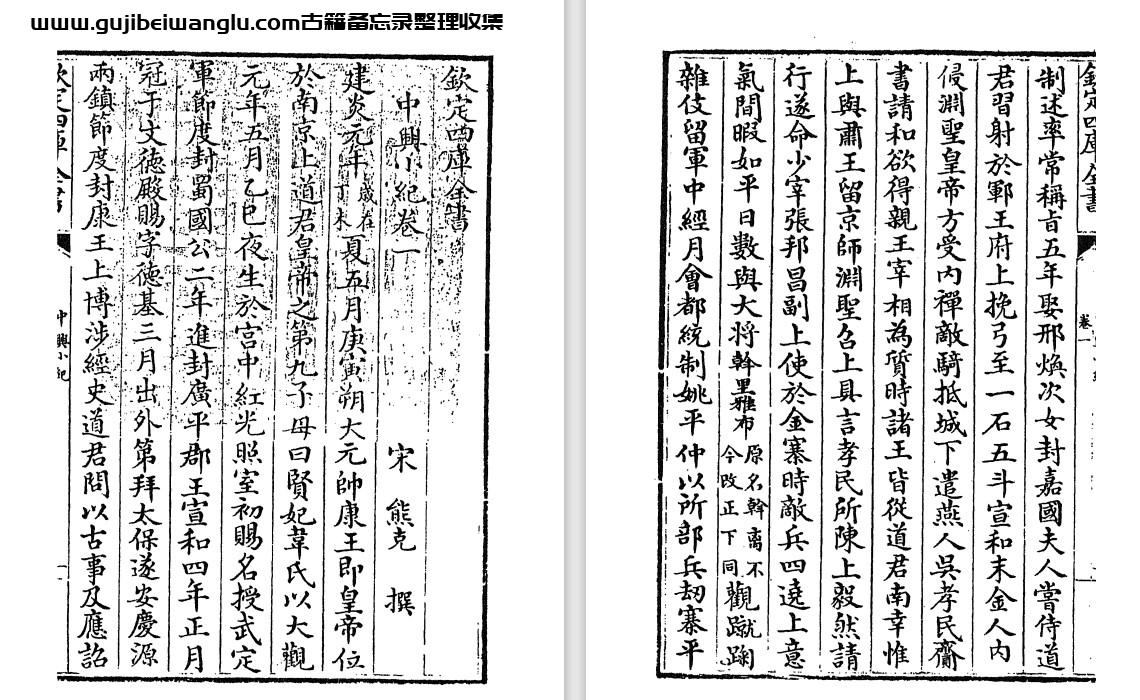 www.gujibeiwanglu.com古籍备忘录整理收集
欽定四庫全書
中興小紀卷一
宋 熊克 撰
建炎元年歲在丁未夏五月庚寅朔大元帥康王即皇帝位
於南京上道君皇帝之第九子母曰賢妃韋氏以大觀
元年五月乙巳夜生於宫中紅光照室初賜名授武定
軍節度封蜀國公二年進封廣平郡王宣和四年正月
冠于文德殿賜字德基三月出外第拜太保遂安慶源
兩鎮節度封康王上博涉經史道君問以古事及應詔
欽定四庫全書
中興小紀
欽定四庫全書
卷一
制述率常稱旨五年娶邢煥次女封嘉國夫人嘗侍道
君習射於鄆王府上挽弓至一石五斗宣和末金人内
侵淵聖皇帝方受内禪敵騎抵城下遣燕人吳孝民齎
書請和欲得親王宰相為質時諸王皆從道君南幸惟
上與肅王留京師淵聖召上具言孝民所陳上毅然請
行遂命少宰張邦昌副上使於金寨時敵兵四遶上意
氣閒暇如平日數與大將斡里雅布原名斡离不今改正下同觀蹴踘
雜伎留軍中經月會都統制姚平仲以所部兵刼寨平